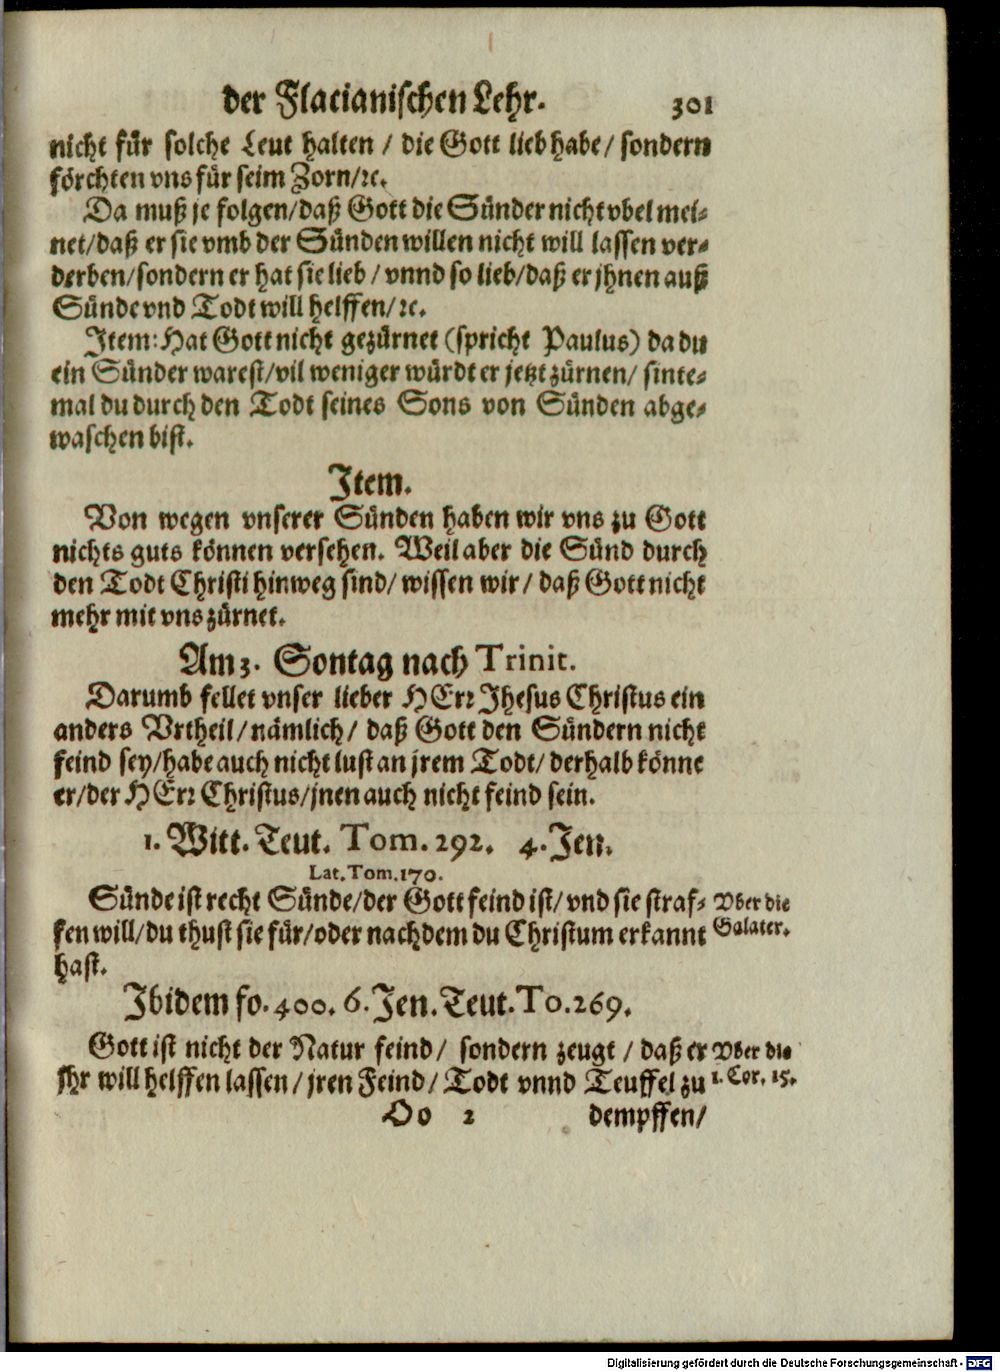 der Flacianischen Lehr. 301
nicht für solche Leut halten / die Gott lieb habe / sondern
förchten vns für seim Zorn/ꝛc.
Da muß je folgen/daß Gott die Sünder nicht vbel mei⸗
net/daß er sie vmb der Sünden willen nicht will lassen ver⸗
derben/sondern er hat sie lieb / vnnd so lieb/daß er jhnen auß
Sünde vnd Todt will helffen/ꝛc.
Item: Hat Gott nicht gezürnet (spricht Paulus) da du
ein Sünder warest/vil weniger würdt er jetzt zürnen/ sinte⸗
mal du durch den Todt seines Sons von Sünden abge⸗
waschen bist.
Item.
Von wegen vnserer Sünden haben wir vns zu Gott
nichts guts können versehen. Weil aber die Sünd durch
den Todt Christi hinweg sind/ wissen wir / daß Gott nicht
mehr mit vns zürnet.
Am 3. Sontag nach Trinit.
Darumb fellet vnser lieber HErꝛ Jhesus Christus ein
anders Vrtheil/ nämlich/ daß Gott den Sündern nicht
feind sey/habe auch nicht lust an jrem Todt/ derhalb könne
er/der HErꝛ Christus/jnen auch nicht feind sein.
1. Witt. Teut. Tom. 292. 4. Jen.
Lat. Tom. 170.
Sünde ist recht Sünde/der Gott feind ist/ vnd sie straf⸗ Vber die
fen will/du thust sie für/oder nachdem du Christum erkannt Galater.
hast.
Ibidem fo. 400. 6. Jen. Teut. To. 269.
Gott ist nicht der Natur feind/ sondern zeugt / daß er Vber die
jhr will helffen lassen / jren Feind/ Todt vnnd Teuffel zu 1. Cor. 15.
Oo 2 dempffen/
Digitalisierung gefördert durch die Deutsche Forschungsgemeinschaft - DFG